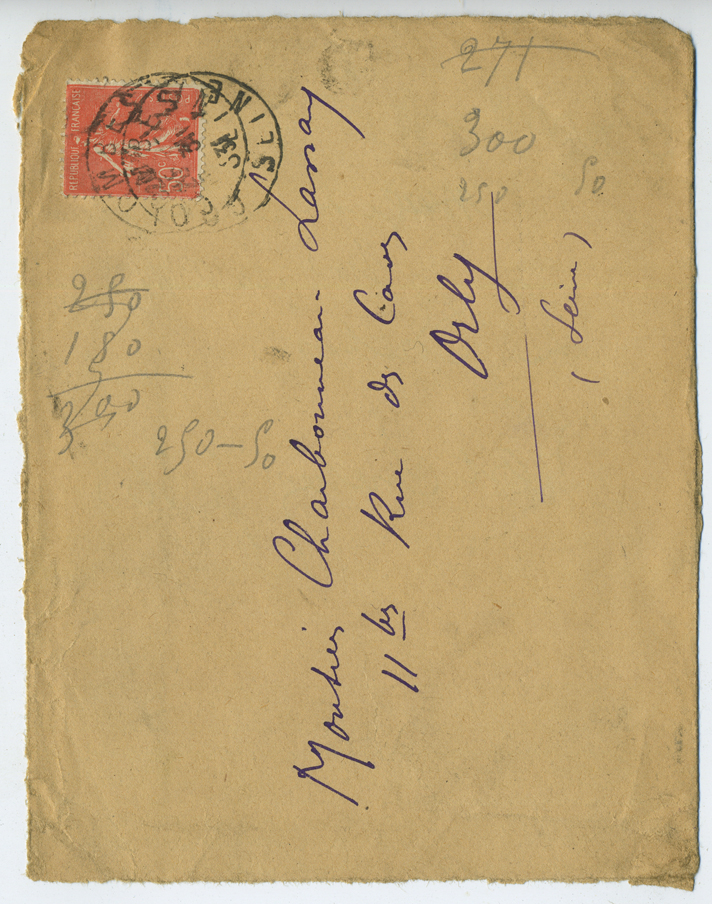 Monsieur Charbonneau-Lassay
11 bis Rue des Caves
Orly
(Seine)
RÉPUBLIQUE FRANÇAISE
50c
271
300
250
50
250
180
250-50